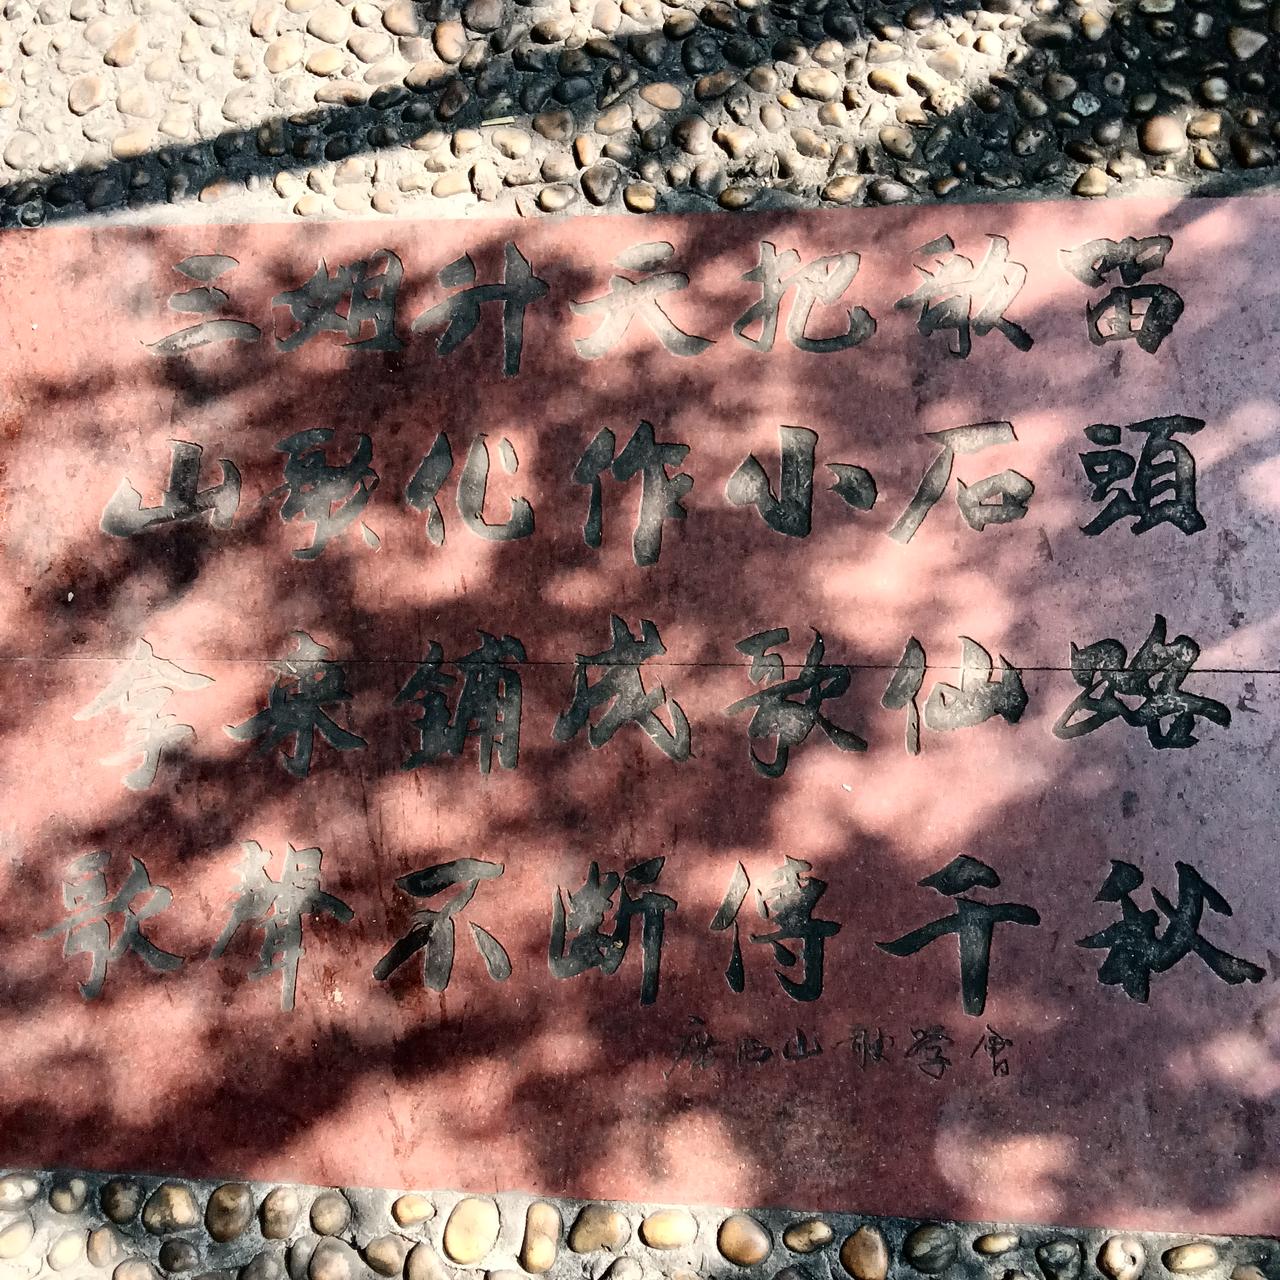 三姐升天把歌留
山歌化作小石頭
拿来鋪成歌仙路
歌聲不断傳千秋
廣西山歌学會